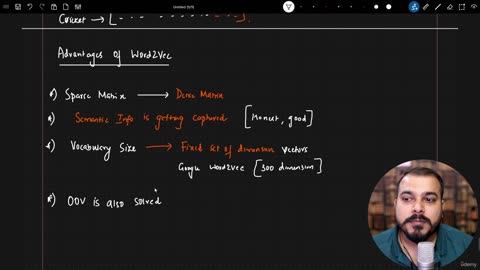 Cricket → [
Advantages of Word2Vec
Sparse Matrix → Dense Matrix
Semantic Info is getting captured [Honest, good]
Vocabulary Size → Fixed set of dimension vectors
Google Word2Vec [300 dimension]
OOV is also solved
ûdemy